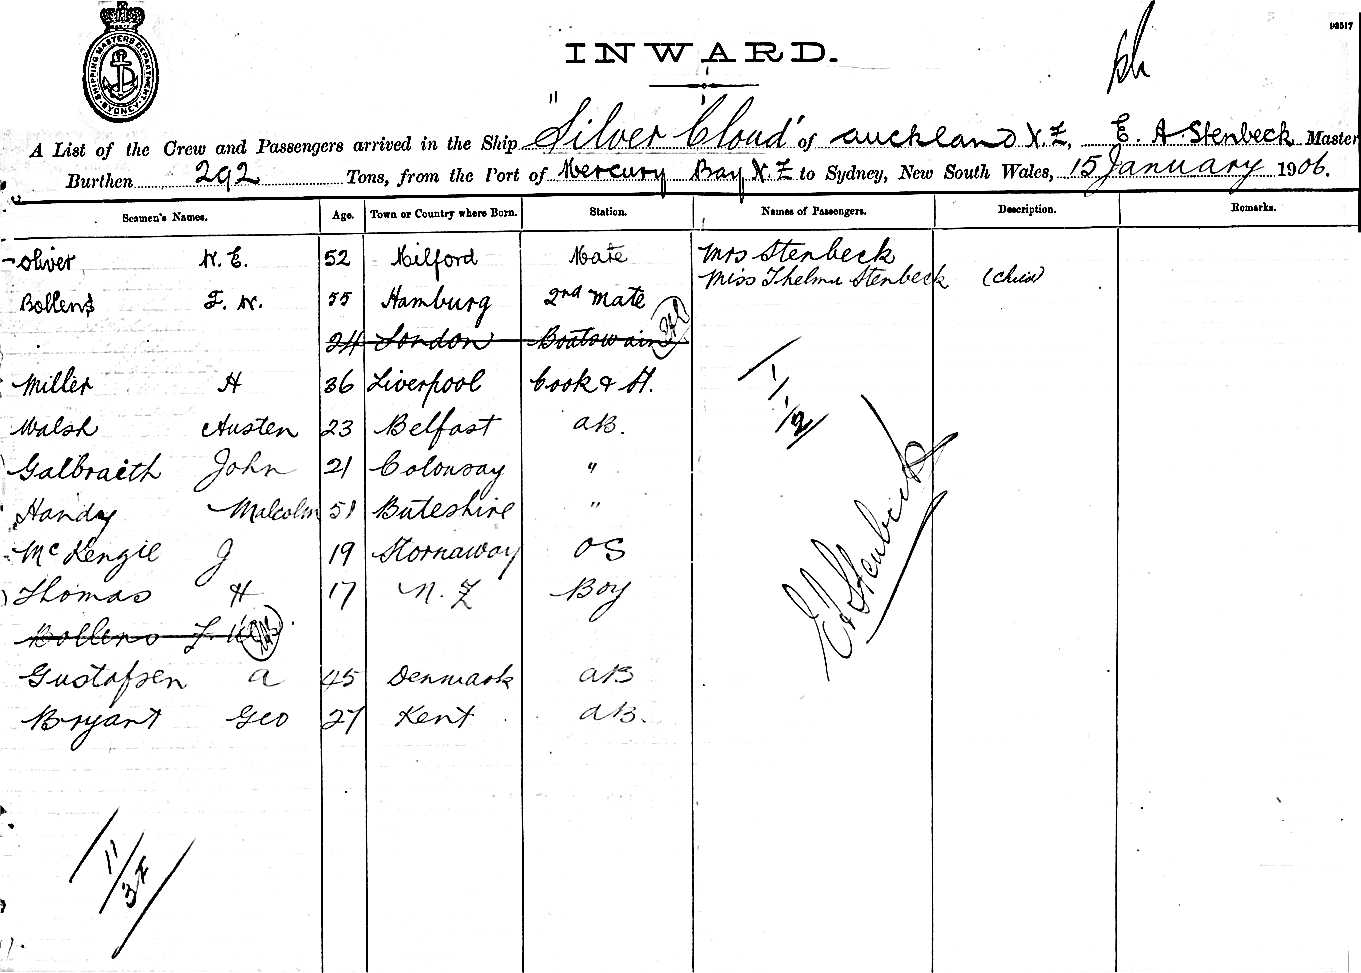 92517
SHIPPING MASTERS DEPARTMENT SYDNEY
INWARD.
A List of the Crew and Passengers arrived in the Ship "Silver Cloud" of Auckland N.Z, E. A Stenbeck Master
Burthen 292 Tons, from the Port of Mercury Bay N.Z to Sydney, New South Wales, 15 January 1906.
Seamen's Names. Age. Town or Country where Born. Station. Names of Passengers. Description. Remarks.
Oliver N. E. 52 Milford Mate Mrs Stenbeck
Miss Thelma Stenbeck (Child)
Bollens F. W. 55 Hamburg 2nd Mate
24 London Boatswain
Miller H 36 Liverpool Cook & St.
Walsh Austen 23 Belfast AB.
Galbraith John 21 Colonsay "
Handy Malcolm 51 Buteshire "
McKengie J 19 Stornaway OS
Thomas H 17 N.Z Boy
Bollens F. W
Gustafsen A 45 Denmark AB
Bryant Geo 27 Kent AB.
1/2
EA Stenbeck
11/3